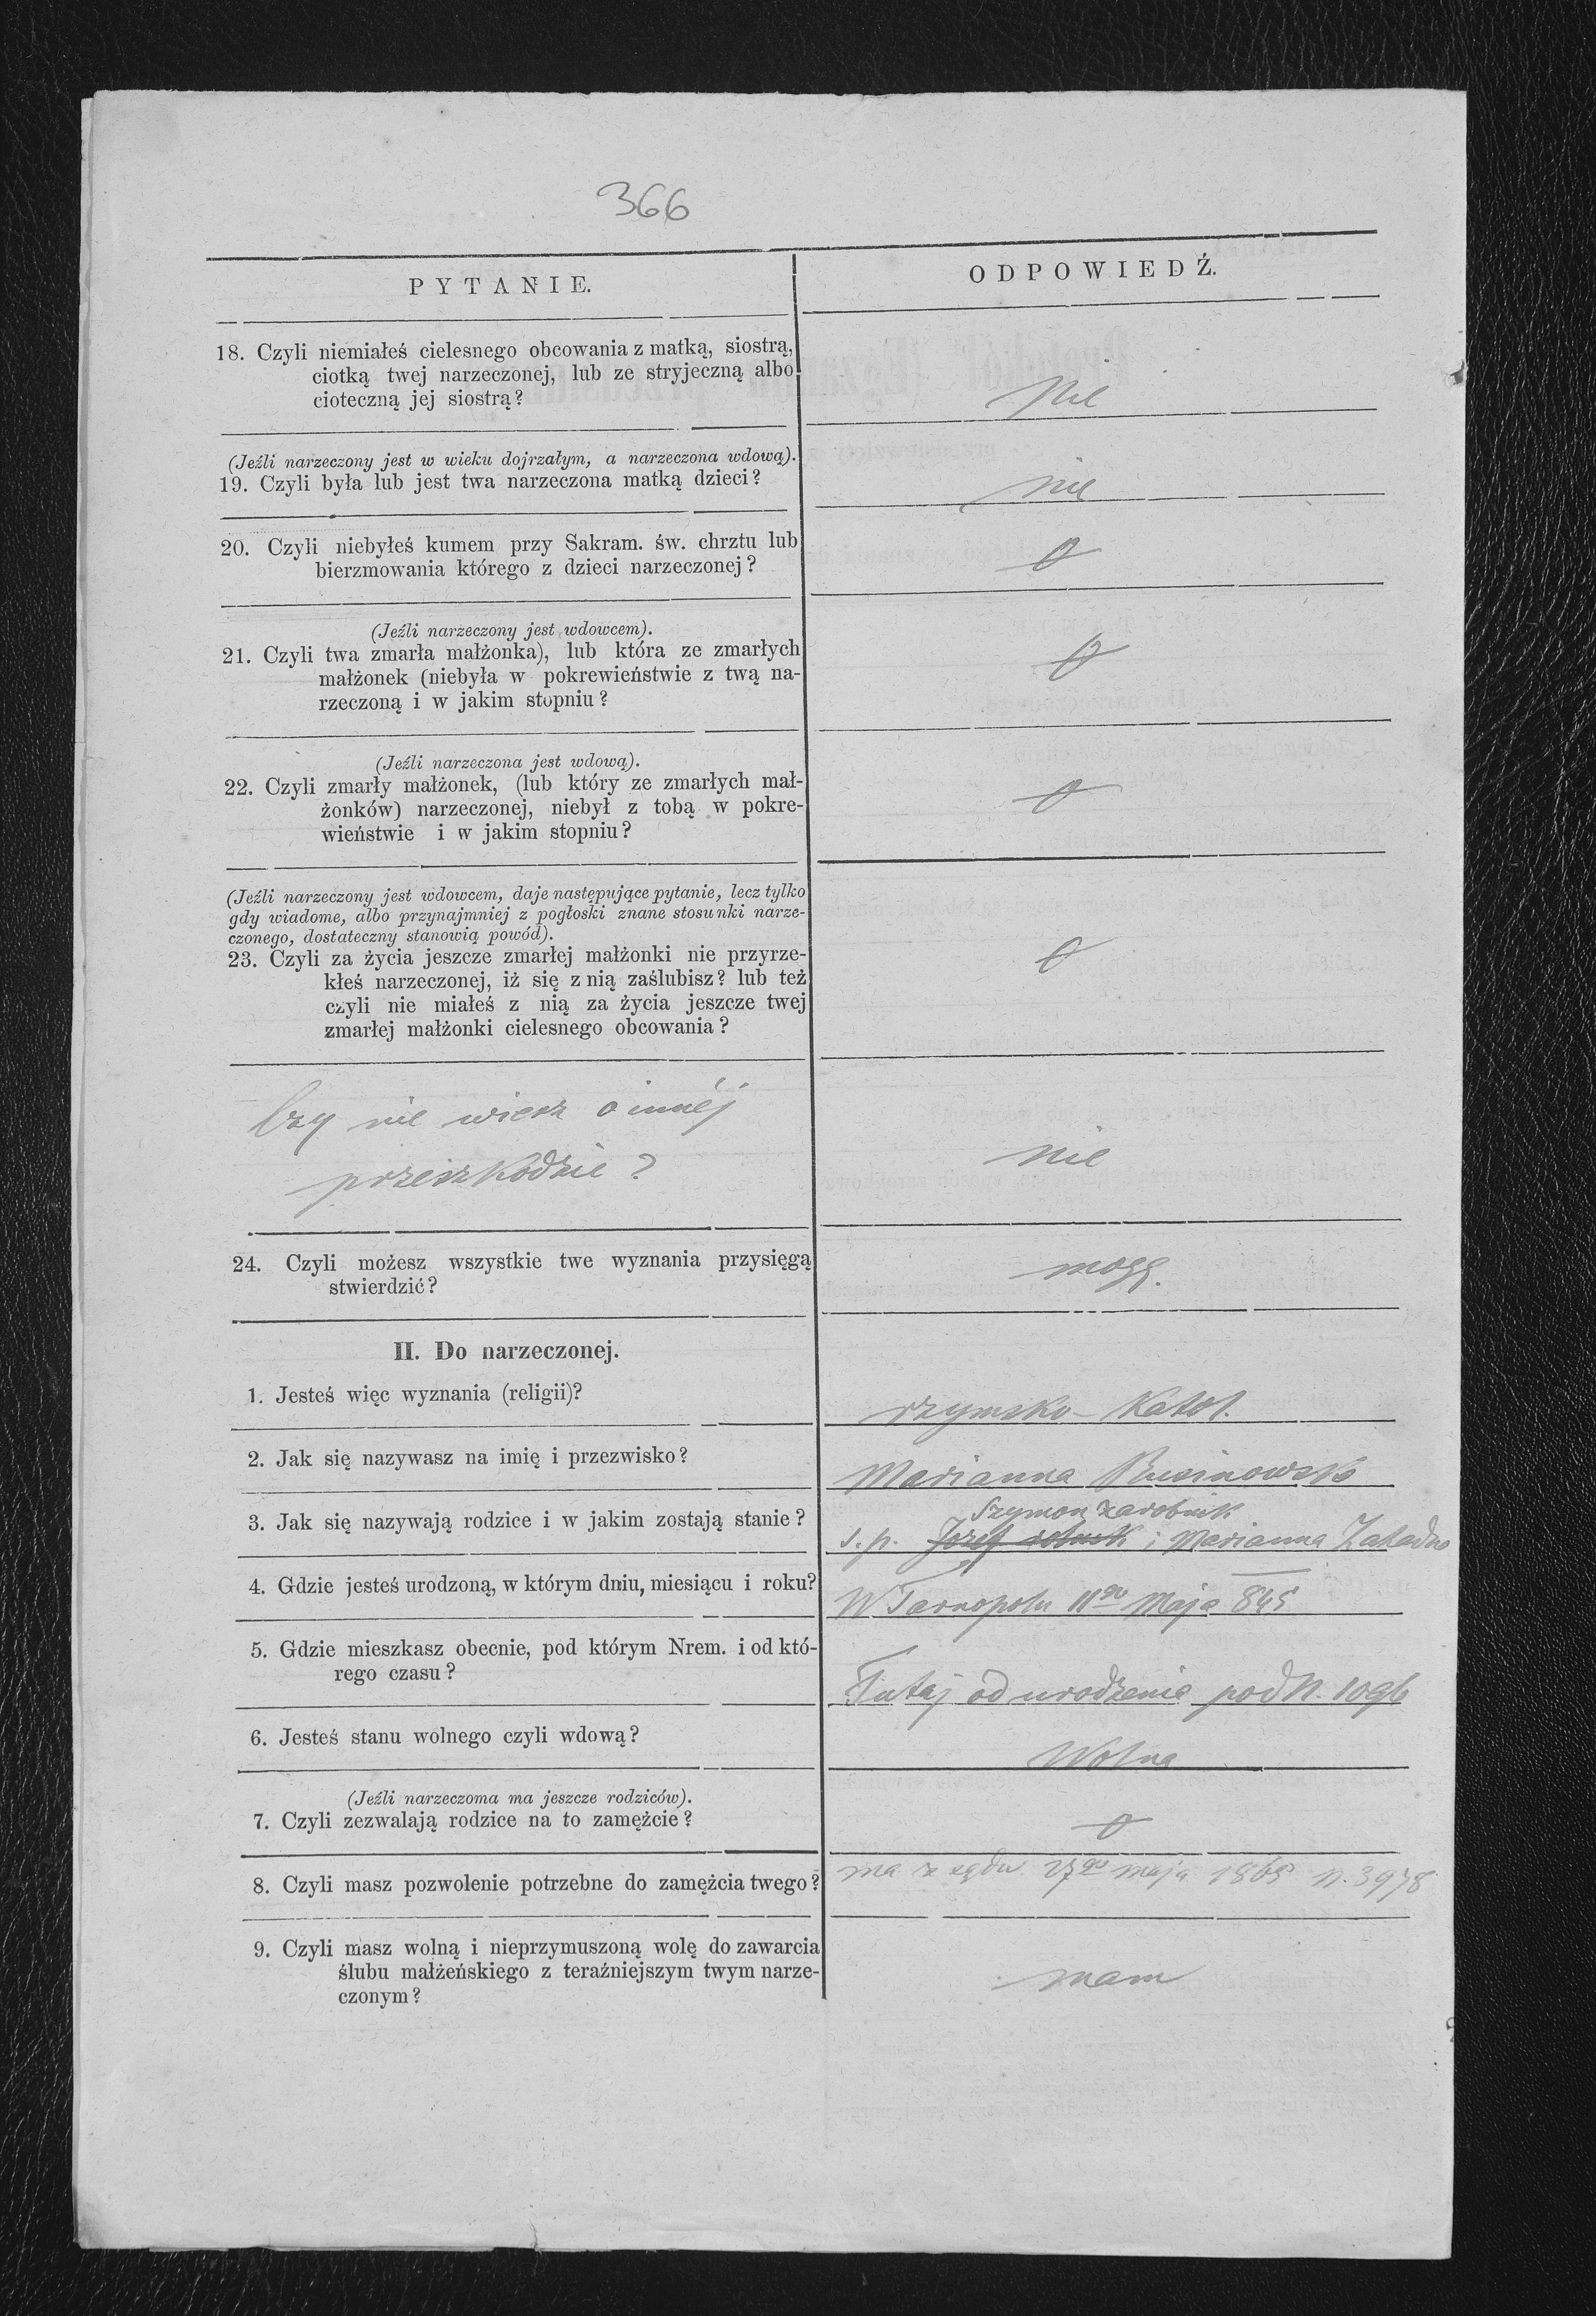 366
PYTANIE.
ODPOWIEDŹ.
18. Czyli niemiałeś cielesnego obcowania z matką, siostrą,
ciotką twej narzeczonej, lub ze stryjeczną albo
cioteczną jej siostrą?
Nie
(Jeźli narzeczony jest w wieku dojrzałym, a narzeczona wdową).
19. Czyli była lub jest twa narzeczona matką dzieci?
nie
20. Czyli niebyłeś kumem przy Sakram. św. chrztu lub
bierzmowania którego z dzieci narzeczonej?
0
(Jeźli narzeczony jest wdowcem).
21. Czyli twa zmarła małżonka), lub która ze zmarłych
małżonek (niebyła w pokrewieństwie z twą na-
rzeczoną i w jakim stopniu?
0
(Jeźli narzeczona jest wdową).
22. Czyli zmarły małżonek, (lub który ze zmarłych mał-
żonków) narzeczonej, niebył z tobą w pokre-
wieństwie i w jakim stopniu?
0
(Jeźli narzeczony jest wdowcem, daje następujące pytanie, lecz tylko
gdy wiadome, albo przynajmniej z pogłoski znane stosunki narze-
czonego, dostateczny stanowią powód).
23. Czyli za życia jeszcze zmarłej małżonki nie przyrze-
kłeś narzeczonej, iż się z nią zaślubisz? lub też
czyli nie miałeś z nią za życia jeszcze twej
zmarłej małżonki cielesnego obcowania?
0
Czy nie wiesz o innéj
przeszkodzie?
nie
24. Czyli możesz wszystkie twe wyznania przysięgą
stwierdzić?
mogę.
II. Do narzeczonej.
1. Jesteś więc wyznania (religii)?
rzymsko-katol.
2. Jak się nazywasz na imię i przezwisko?
Marianna Rusinowska
3. Jak się nazywają rodzice i w jakim zostają stanie?
Szymon zarobnik
ś.p. Józef i Marianna
4. Gdzie jesteś urodzoną, w którym dniu, miesiącu i roku?
W Tarnopolu 11go Maja 845
5. Gdzie mieszkasz obecnie, pod którym Nrem. i od któ-
rego czasu?
Tutaj od urodzenia pod N. 1096
6. Jesteś stanu wolnego czyli wdową?
Wolna
(Jeźli narzeczoma ma jeszcze rodziców).
7. Czyli zezwalają rodzice na to zamężcie?
0
8. Czyli masz pozwolenie potrzebne do zamężcia twego?
ma z sądu 27go maja 1865 n. 3978
9. Czyli masz wolną i nieprzymuszoną wolę do zawarcia
ślubu małżeńskiego z teraźniejszym twym narze-
czonym?
mam